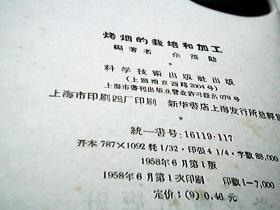 烤烟的栽培和加工
編著者 佘茂勛
科学技術出版社出版
(上海南京西路2004号)
上海市書刊出版业营业許可証出079号
上海市印刷四厂印刷 新华書店上海发行所总經售
統一書号:16119·117
开本 787×1092 耗 1/32·印張 4 1/4·字数 88,000
1958年6月第1版
1958年6月第1次印刷 印数 1—7,000
定价:(9) 0.46 元